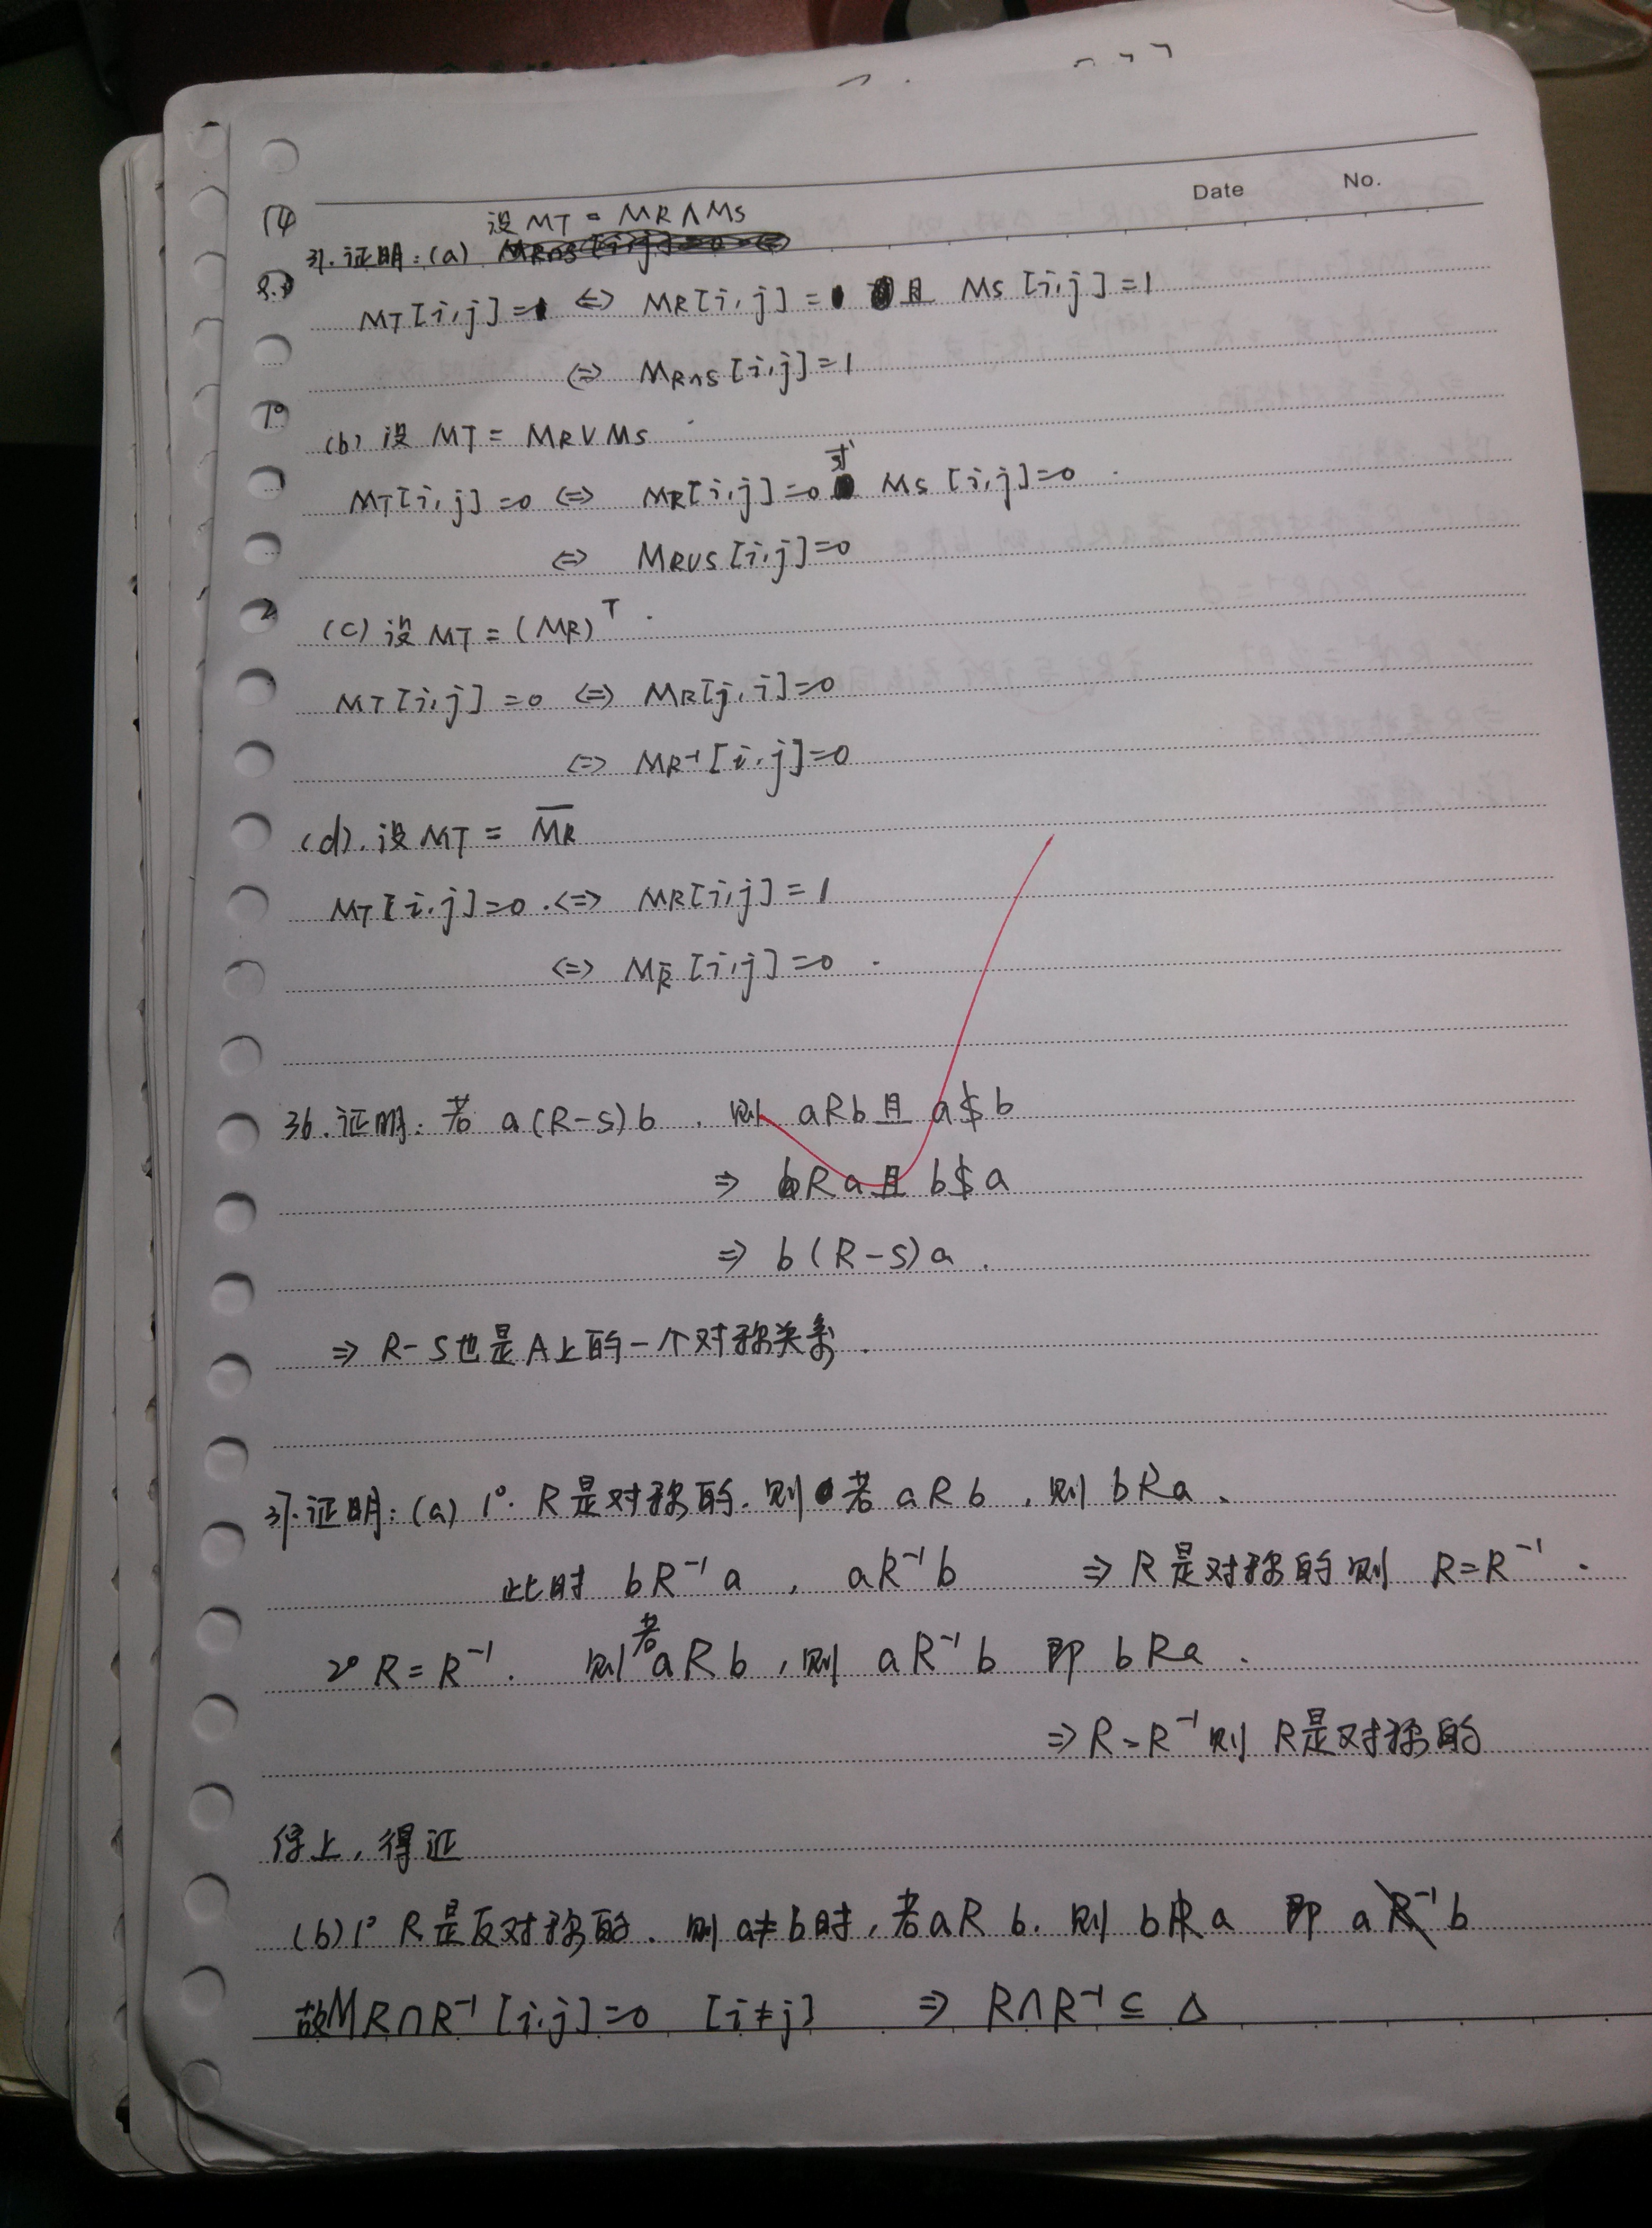 Date No.
设 MT = MR∧MS
31. 证明: (a)
MT[i,j]=1 ⇔ MR[i,j]=1 且 MS[i,j]=1
⇔ MR∩S[i,j]=1
(b) 设 MT = MR∨MS
MT[i,j]=0 ⇔ MR[i,j]=0 或 MS[i,j]=0
⇔ MR∪S[i,j]=0
(c) 设 MT = (MR)ᵀ
MT[i,j]=0 ⇔ MR[j,i]=0
⇔ MR⁻¹[i,j]=0
(d). 设 MT = M̅R̅
MT[i,j]=0 ⇔ MR[i,j]=1
⇔ MR̅[i,j]=0
36. 证明: 若 a(R-S)b , 则 aRb 且 a$b
⇒ bRa 且 b$a
⇒ b(R-S)a.
⇒ R-S也是A上的一个对称关系.
37. 证明: (a) 1°. R是对称的. 则若 aRb , 则 bRa .
此时 bR⁻¹a , aR⁻¹b ⇒ R是对称的则 R=R⁻¹ .
2° R=R⁻¹ . 则若aRb , 则 aR⁻¹b 即 bRa .
⇒ R=R⁻¹则 R是对称的
综上, 得证
(b) 1° R是反对称的. 则 a≠b时, 若aRb. 则 bR̸a 即 aR̸⁻¹b
故MR∩R⁻¹[i,j]=0 [i≠j] ⇒ R∩R⁻¹⊆Δ